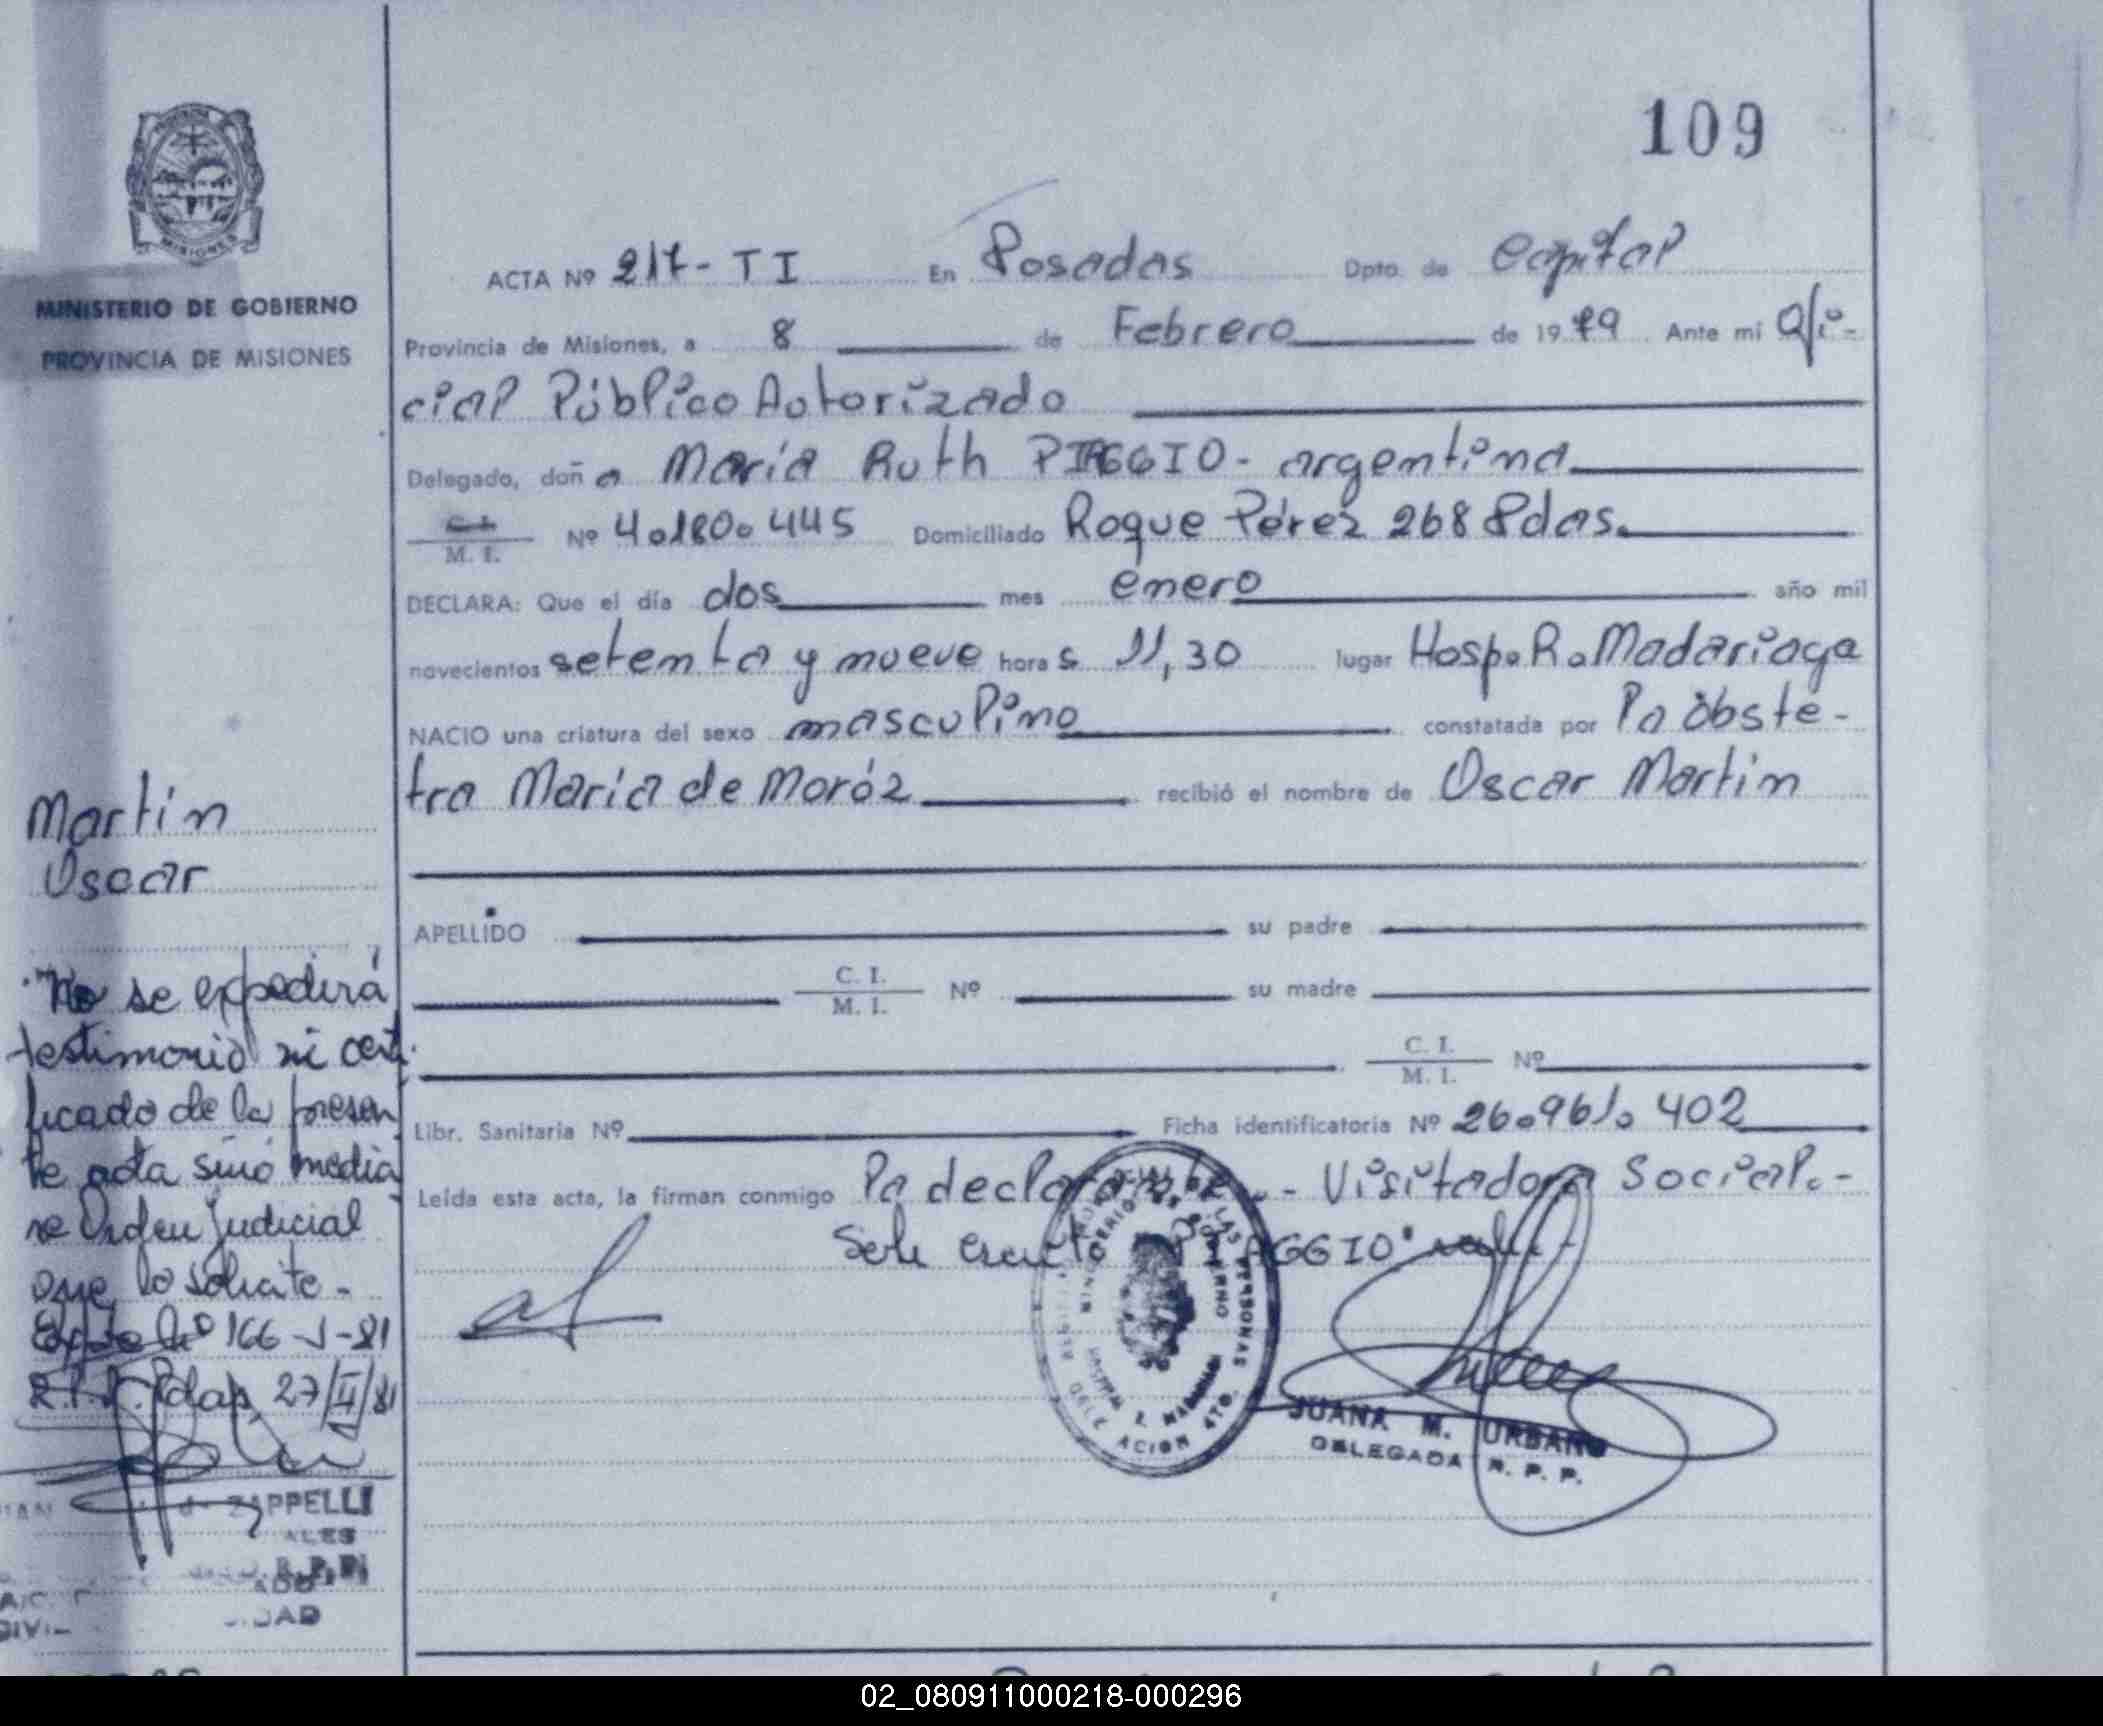 109
MISIONES
MINISTERIO DE GOBIERNO
PROVINCIA DE MISIONES
ACTA Nº 217- TI En Posadas Dpto. de Capital
Provincia de Misiones, a 8 de Febrero de 1979 Ante mi Ofi-
cial Público Autorizado
Delegado, doña María Ruth PIAGGIO- argentina
C. I.
M. I. Nº 4.180.445 Domiciliado Roque Pérez 268 Pdas.
DECLARA: Que el día dos mes enero año mil
novecientos setenta y nueve horas 11,30 lugar Hosp. R. Madariaga
NACIO una criatura del sexo masculino constatada por la obste-
tra María de Moróz recibió el nombre de Oscar Martin
APELLIDO su padre
C. I.
M. I. Nº su madre
C. I.
M. I. Nº
Libr. Sanitaria Nº Ficha identificatoria Nº 26.961.402
Leída esta acta, la firman conmigo la declarante.- Visitadora Social.-
PIAGGIO
JUANA M. URBANO
DELEGADA R. P. P.
Martín
Oscar
"No se expedirá
testimonio ni certi
ficado de la presen
te acta sinó media
te Orden Judicial
que lo solicite.
Expte Nº 166-J-81
Pdas, 27/II/81
ZAPPELLI